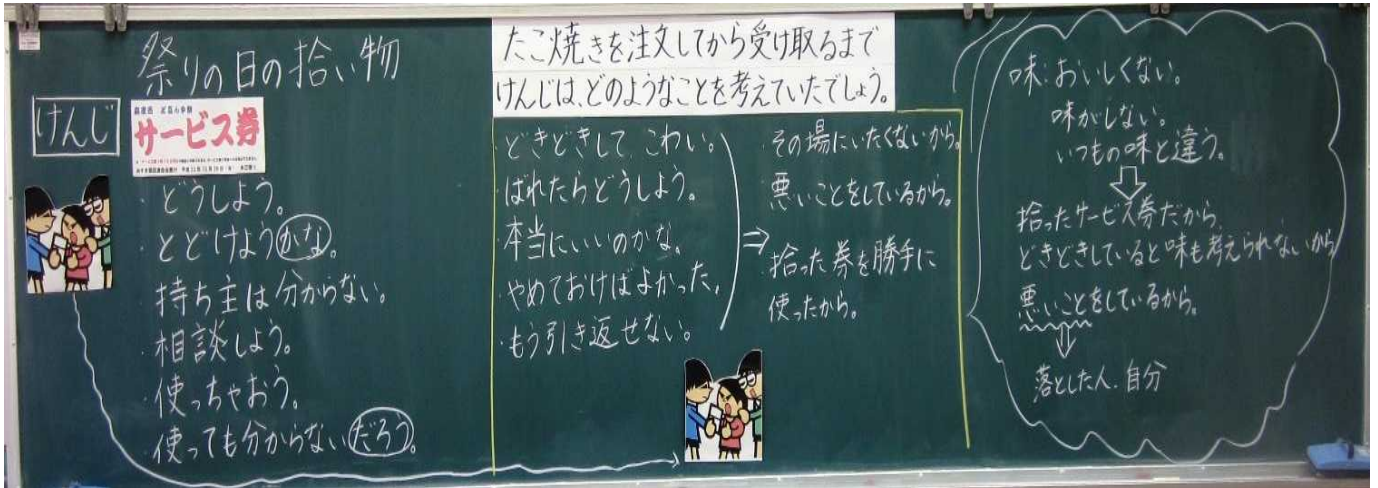 祭りの日の拾い物
けんじ
サービス券
・どうしよう。
・とどけようかな。
・持ち主は分からない。
・相談しよう。
・使っちゃおう。
・使っても分からないだろう。
たこ焼きを注文してから受け取るまで
けんじは、どのようなことを考えていたでしょう。
・どきどきして こわい。
・ばれたらどうしよう。
・本当にいいのかな。
・やめておけばよかった。
・もう引き返せない。
⇒
・その場にいたくないから。
・悪いことをしているから。
・拾った券を勝手に
使ったから。
味:おいしくない。
味がしない。
いつもの味と違う。
拾ったサービス券だから。
どきどきしていると味も考えられないから
悪いことをしているから。
落とした人、自分